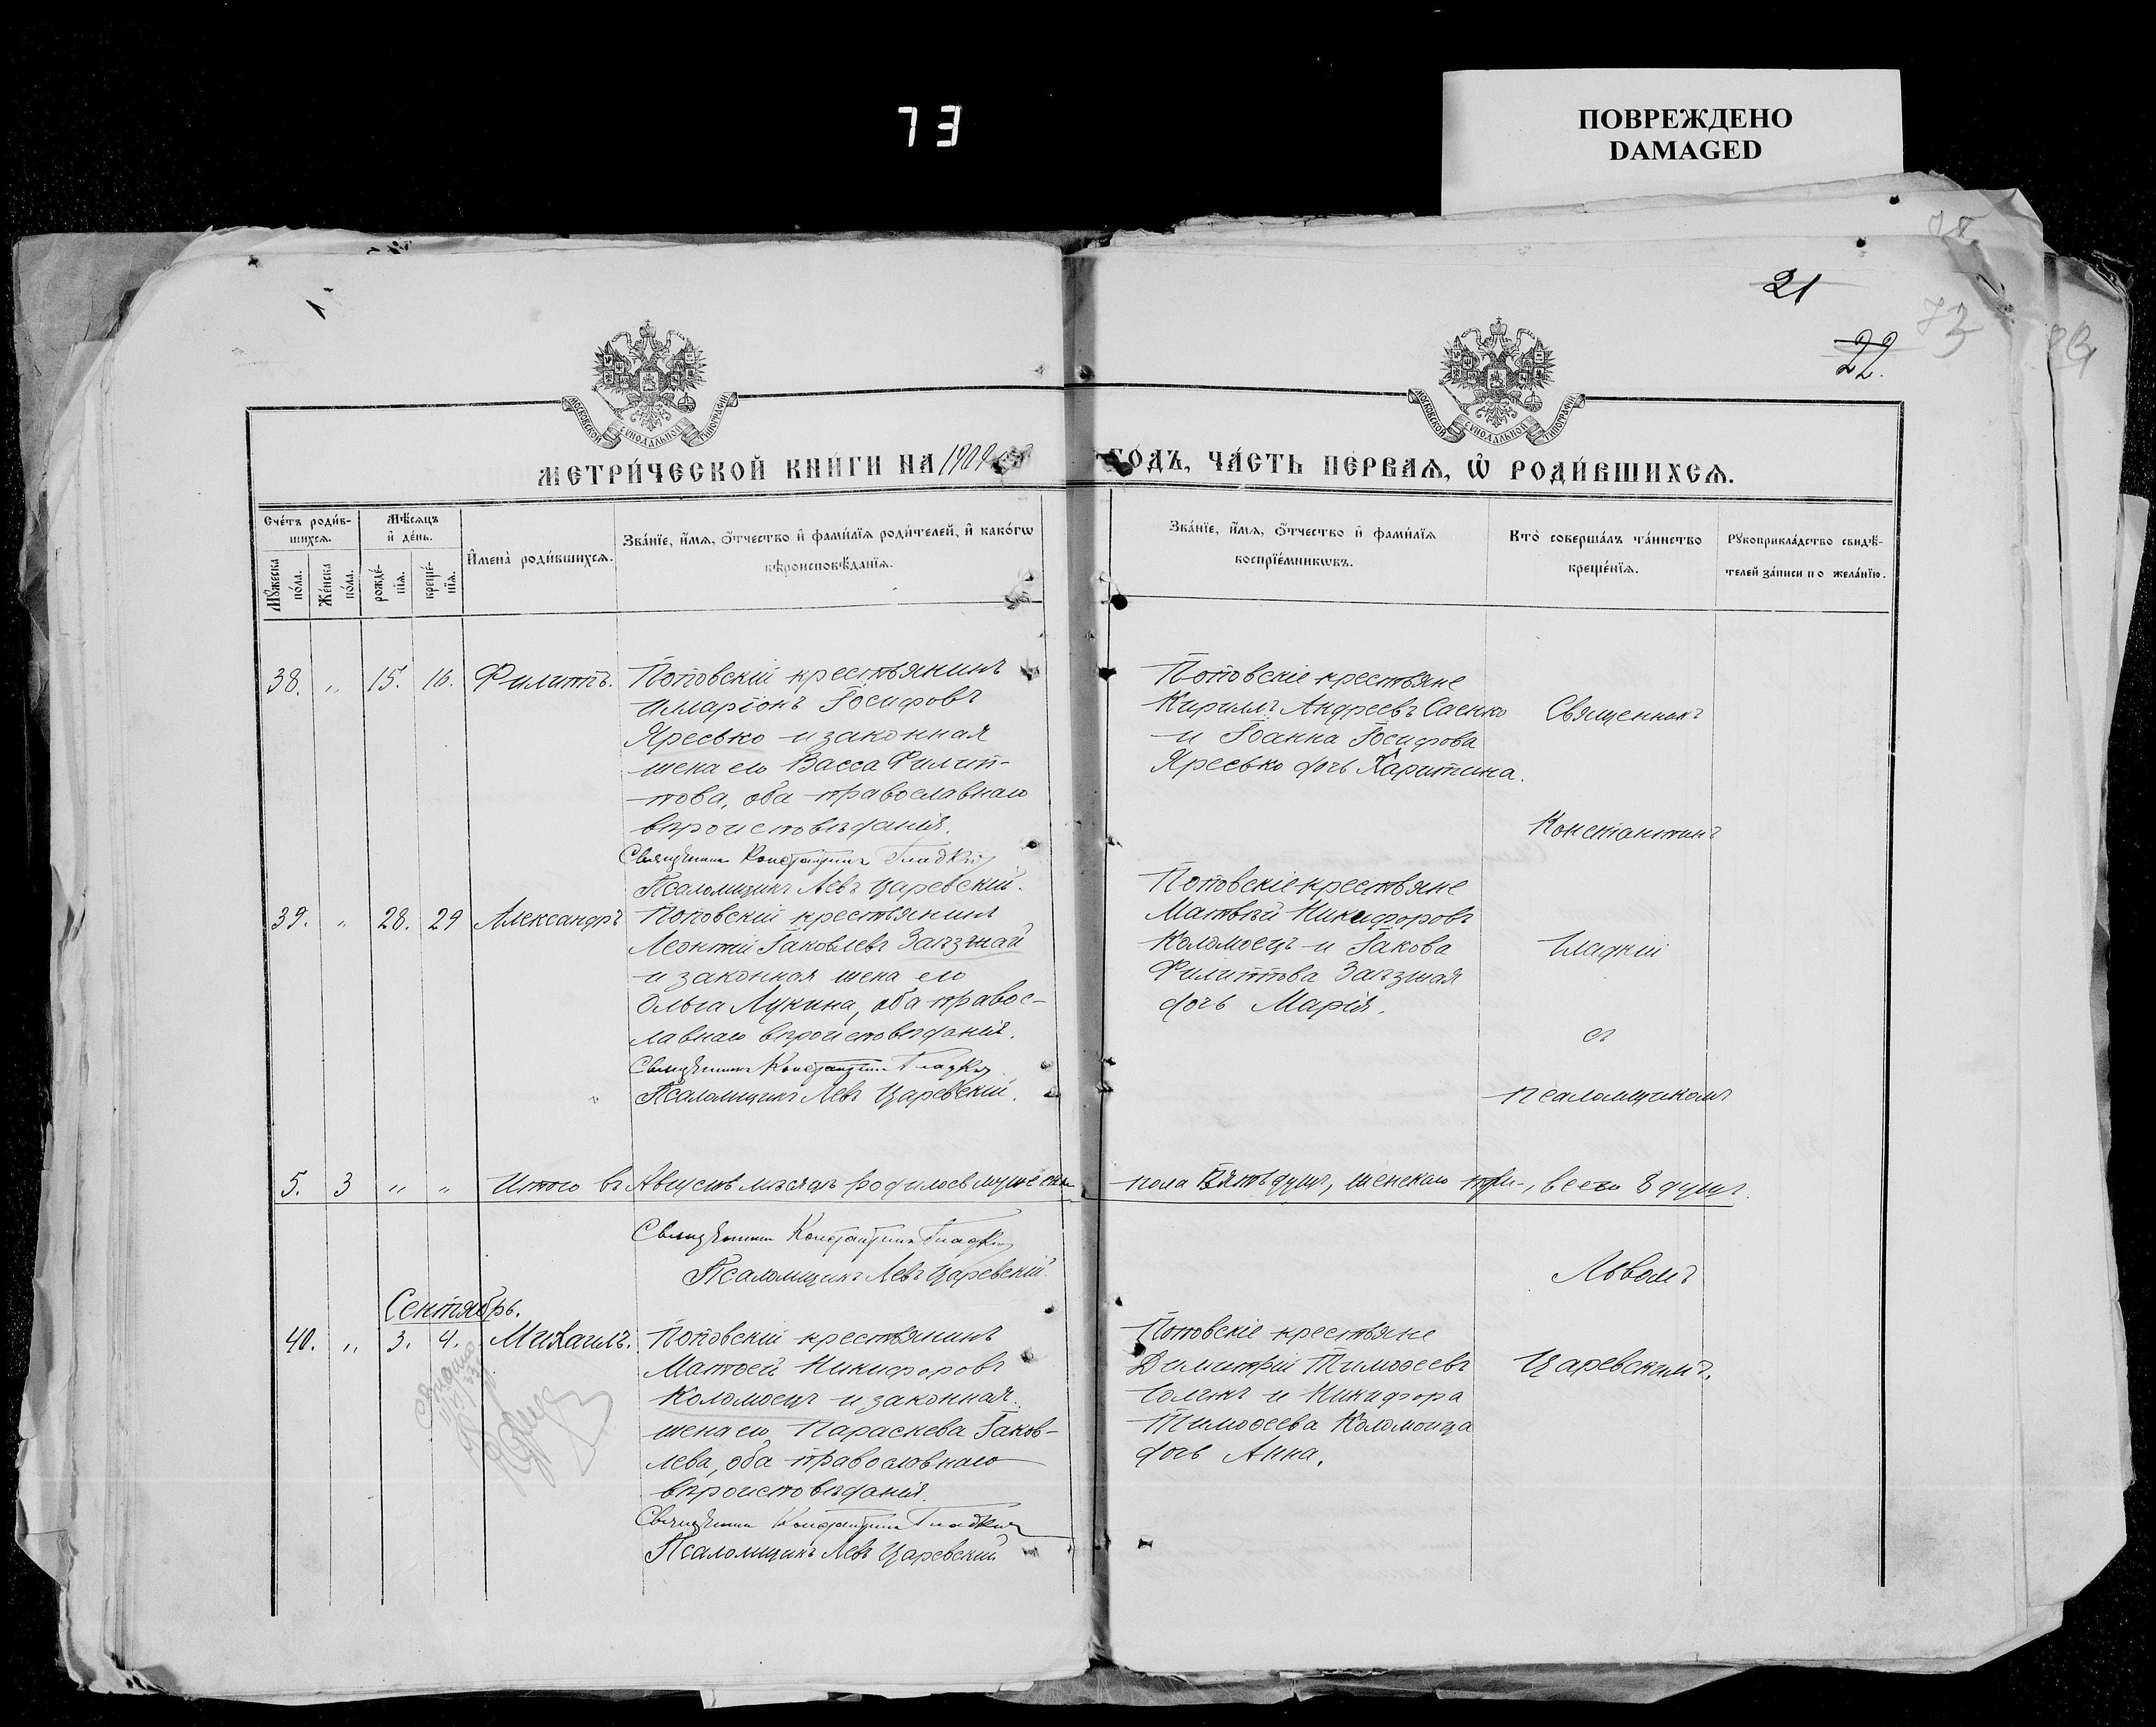 73
ПОВРЕЖДЕНО
DAMAGED
21
73
22.
МОСКОВСКОЙ СѴНОДАЛЬНОЙ ТИПОГРАФІИ
МОСКОВСКОЙ СѴНОДАЛЬНОЙ ТИПОГРАФІИ
МЕТРИ́ЧЕСКОЙ КНИ́ГИ НА 1909
ГО́ДЪ, ЧА́СТЬ ПЕ́РВАѦ, Ѡ҆ РОДИ́ВШИХСѦ.
Сче́тъ роди́в-
шихсѧ.
Мꙋ́жеска по́ла.
Же́нска по́ла.
Мѣ́сѧцъ
и҆ де́нь.
рожде́-нїѧ.
креще́-нїѧ.
И҆мена̀ роди́вшихсѧ.
Зва́нїе, и҆́мѧ, ѻ҆́тчество и҆ фами́лїѧ роди́телей, и҆ како́гѡ
вѣроисповѣ́данїѧ.
Зва́нїе, и҆́мѧ, ѻ҆́тчество и҆ фами́лїѧ
воспрїе́мникѡвъ.
Кто̀ соверша́лъ та́инство
креще́нїѧ.
Рꙋкоприкла́дство свидѣ́-
телей за́писи по жела́нїю.
38. " 15. 16. Филиппъ.
Поповскій крестьянинъ
Иларіонъ Іосифовъ
Яресько и законная
жена его Васса Филип-
пова, оба православнаго
вѣроисповѣданія.
Священникъ Константинъ Гладкій
Псаломщикъ Левъ Царевскій.
Поповскіе крестьяне
Кирилъ Андреевъ Саенко
и Іоанна Іосифова
Яресько дочь Харитина.
39. " 28. 29 Александръ
Поповскій крестьянинъ
Леонтій Іаковлевъ Заѣзжай
и законная жена его
Ольга Лукина, оба правос-
лавнаго вѣроисповѣданія.
Священникъ Константинъ Гладкій
Псаломщикъ Левъ Царевскій.
Поповскіе крестьяне
Матвѣй Никифоровъ
Коломоецъ и Іакова
Филиппова Заѣзжая
дочь Марія.
5. 3 " " Итого въ Августѣ мѣсяцѣ родилось мужеска
пола Пять душъ, женскаго три, всего 8 душъ.
Священникъ Константинъ Гладкій
Псаломщикъ Левъ Царевскій.
Сентябрь.
40. " 3. 4. Михаилъ.
Поповскій крестьянинъ
Матѳей Никифоровъ
Коломоецъ и законная
жена его Параскева Іаков-
лева, оба православнаго
вѣроисповѣданія.
Священникъ Константинъ Гладкій
Псаломщикъ Левъ Царевскій
Поповскіе крестьяне
Димитрій Тимоѳеевъ
и Никифора
Тимоѳеева Коломойца
дочь Анна.
Священникъ
Константинъ
Гладкій
съ
псаломщикомъ
Львомъ
Царевскимъ.